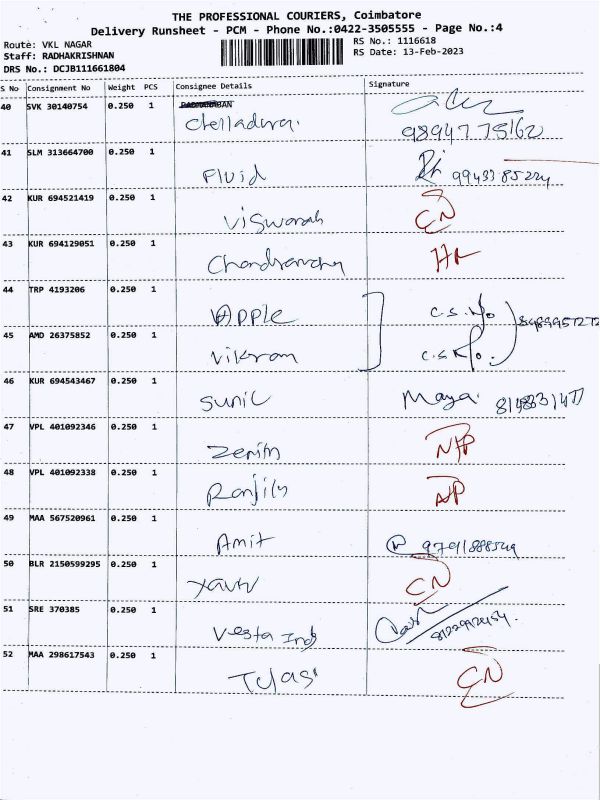 THE PROFESSIONAL COURIERS, Coimbatore
Delivery Runsheet - PCM - Phone No.:0422-3505555 - Page No.:4
Route: VKL NAGAR
RS No.: 1116618
Staff: RADHAKRISHNAN
RS Date: 13-Feb-2023
DRS No.: DCJB111661804
S No Consignment No Weight PCS Consignee Details Signature
40 SVK 30140754 0.250 1
Chelladurai
98947 75162
41 SLM 313664700 0.250 1
Fluid 99433 85224
42 KUR 694521419 0.250 1
Viswanath CN
43 KUR 694129051 0.250 1
Chandrancha HR
44 TRP 4193206 0.250 1
Apple C.S.
45 AMD 26375852 0.250 1
Vikram C.S
46 KUR 694543467 0.250 1
Sunil Maya
47 VPL 401092346 0.250 1
Zenith NP
48 VPL 401092338 0.250 1
Ranjith NP
49 MAA 567520961 0.250 1
Amit
50 BLR 2150599295 0.250 1
CN
51 SRE 370385 0.250 1
Vesta Inds
52 MAA 298617543 0.250 1
Tulasi CN